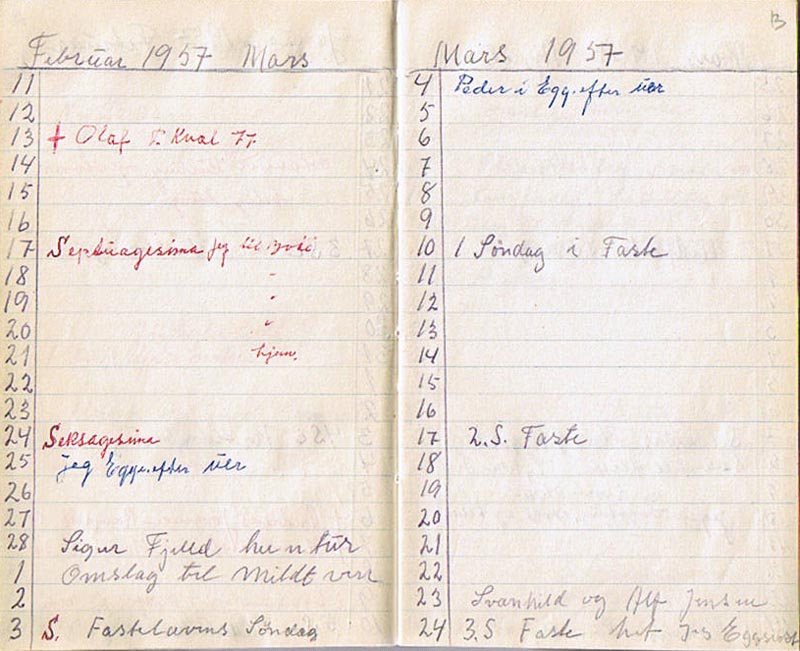 Februar 1957 Mars
11
12
13 + Olaf P. Kval 77
14
15
16
17 Septuagesima jeg til
18 "
19 "
20 "
21 hjem.
22
23
24 Seksagesima
25 jeg Egge. efter
26
27
28 Sigur Fjelld
1 Omslag til Mildt
2
3 S. Fastelavns Søndag
13
Mars 1957
4 Peder i Egge. efter
5
6
7
8
9
10 1 Søndag i Faste
11
12
13
14
15
16
17 2. S. Faste
18
19
20
21
22
23 Svanhild og Alf Jensen
24 3. S Faste